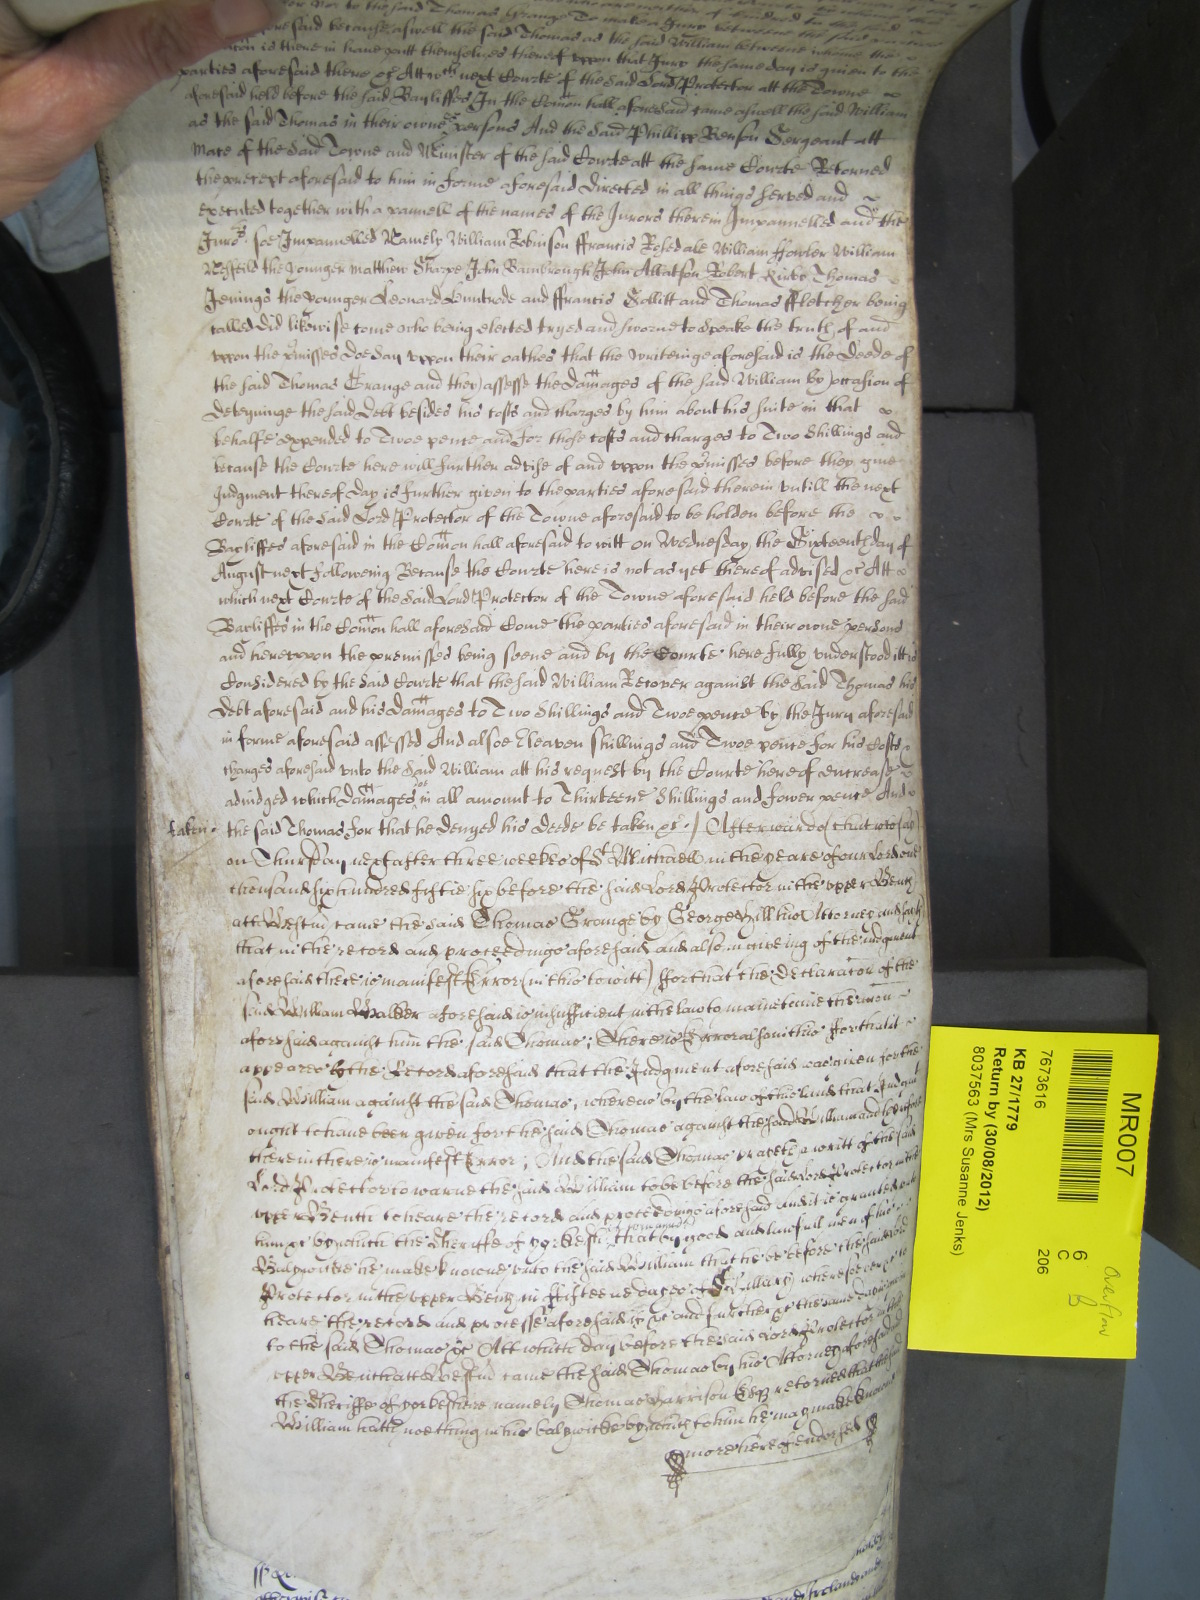 for not to the said Thomas Grange To make a Jury betweene the said parties
aforesaid because aswell the said Thomas as the said William betweene whome the
is there in have putt themselves thereof uppon that Jury the same day is given to the
parties aforesaid there &c Att wch next Courte of the said Lord Protector att the Towne
aforesaid held before the said Bayliffes In the Comon hall aforesaid came aswell the said William
as the said Thomas in their owne persons And the said Phillipp Benson Sergeant att
Mace of the said Towne and Minister of the said Courte att the same Courte Retorned
the precept aforesaid to him in forme aforesaid directed in all things served and
executed together with a pannell of the names of the Jurors therein Impannelled and the
Juro:rs soe Impannelled Namely William Robinson ffrancis Rosedale William ffowler William
the younger Matthew Sharpe John Bambrough John Allatson Robert Kirke Thomas
Jenings the younger Leonard and ffrancis Gallitt and Thomas ffletcher being
called did likewise come who being elected tryed and sworne to speake the truth of and
uppon the pmisses doe say uppon their oathes that the writeinge aforesaid is the Deede of
the said Thomas Grange and they assesse the damages of the said William by occasion of
deteyninge the said Debt besides his costs and charges by him about his suite in that
behalfe expended to Twoe pence and for those costs and charges to Two Shillings and
because the Courte here will further advise of and uppon the pmisses before they give
Judgment thereof day is further given to the parties aforesaid therein untill the next
Courte of the said Lord Protector of the Towne aforesaid to be holden before the
Bayliffes aforesaid in the Comon hall aforesaid to witt on Wednesday the Sixteenth day of
August next followeing Because the Courte here is not as yet thereof advised &c Att
which next Courte of the said Lord Protector of the Towne aforesaid held before the said
Bayliffes in the Comon hall aforesaid Come the parties aforesaid in their owne persons
and hereuppon the premisses being seene and by the Courte here fully understood itt is
Considered by the said Courte that the said William Recover against the said Thomas his
Debt aforesaid and his damages to Two Shillings and Twoe pence by the Jury aforesaid
in forme aforesaid assessed And alsoe Eleaven shillings and Twoe pence for his Costs
charges aforesaid unto the said William att his request by the Courte here of encrease
adiudged which damages in all amount to Thirteene Shillings and fower pence And
taken. the said Thomas for that he denyed his deede be taken &c. Afterwards that is to say
on Thursday next after three weekes of St Michaell in the yeare of our Lord one
thousand six hundred fiftie six before the said Lord Protector in the upper Bench
att Westm came the said Thomas Grange by George Hill his Attorney and saith
that in the record and proceedings aforesaid and also in giveing of the iudgment
aforesaid there is manifest Error (in this to witt) ffor that the declaracon of the
said William Walker aforesaid is insufficient in the law to mainteine the
aforesaid against him the said Thomas; There is Error also in this for that itt
appeares by the Record aforesaid that the Judgment aforesaid was given for the
said William against the said Thomas, whereas by the law of this land that Judgmt
ought to have been given for the said Thomas against the said William and therefore
therein there is manifest Error; And the said Thomas prayeth a writt of the said
Lord Protector to warne the said William to be before the said Lord Protector in the
upper Bench to heare the record and proceedings aforesaid and it is granted unto
him &c by which the Sheriffe of Yorkesh: that by good and lawfull men of his
Baliwicke he make knowne unto the said William that he be before the said Lord
Protector in the upper Bench in fifteene dayes of St Hillary wheresoever &c to
heare the record and processe aforesaid if &c and further &c the same day is given
to the said Thomas &c Att which day before the said Lord Protector in the
upper Bench att Westm came the said Thomas by his Attorney aforesaid
the Sheriffe of Yorkeshire namely Thomas Harrison Esqr returned that the said
William hath noething in his baliwicke by which to him he may make knowne
more hereof endorsed
MR007
7673616
KB 27/1779
Return by (30/08/2012)
8037563 (Mrs Susanne Jenks)
6
C
206
Overflow
B